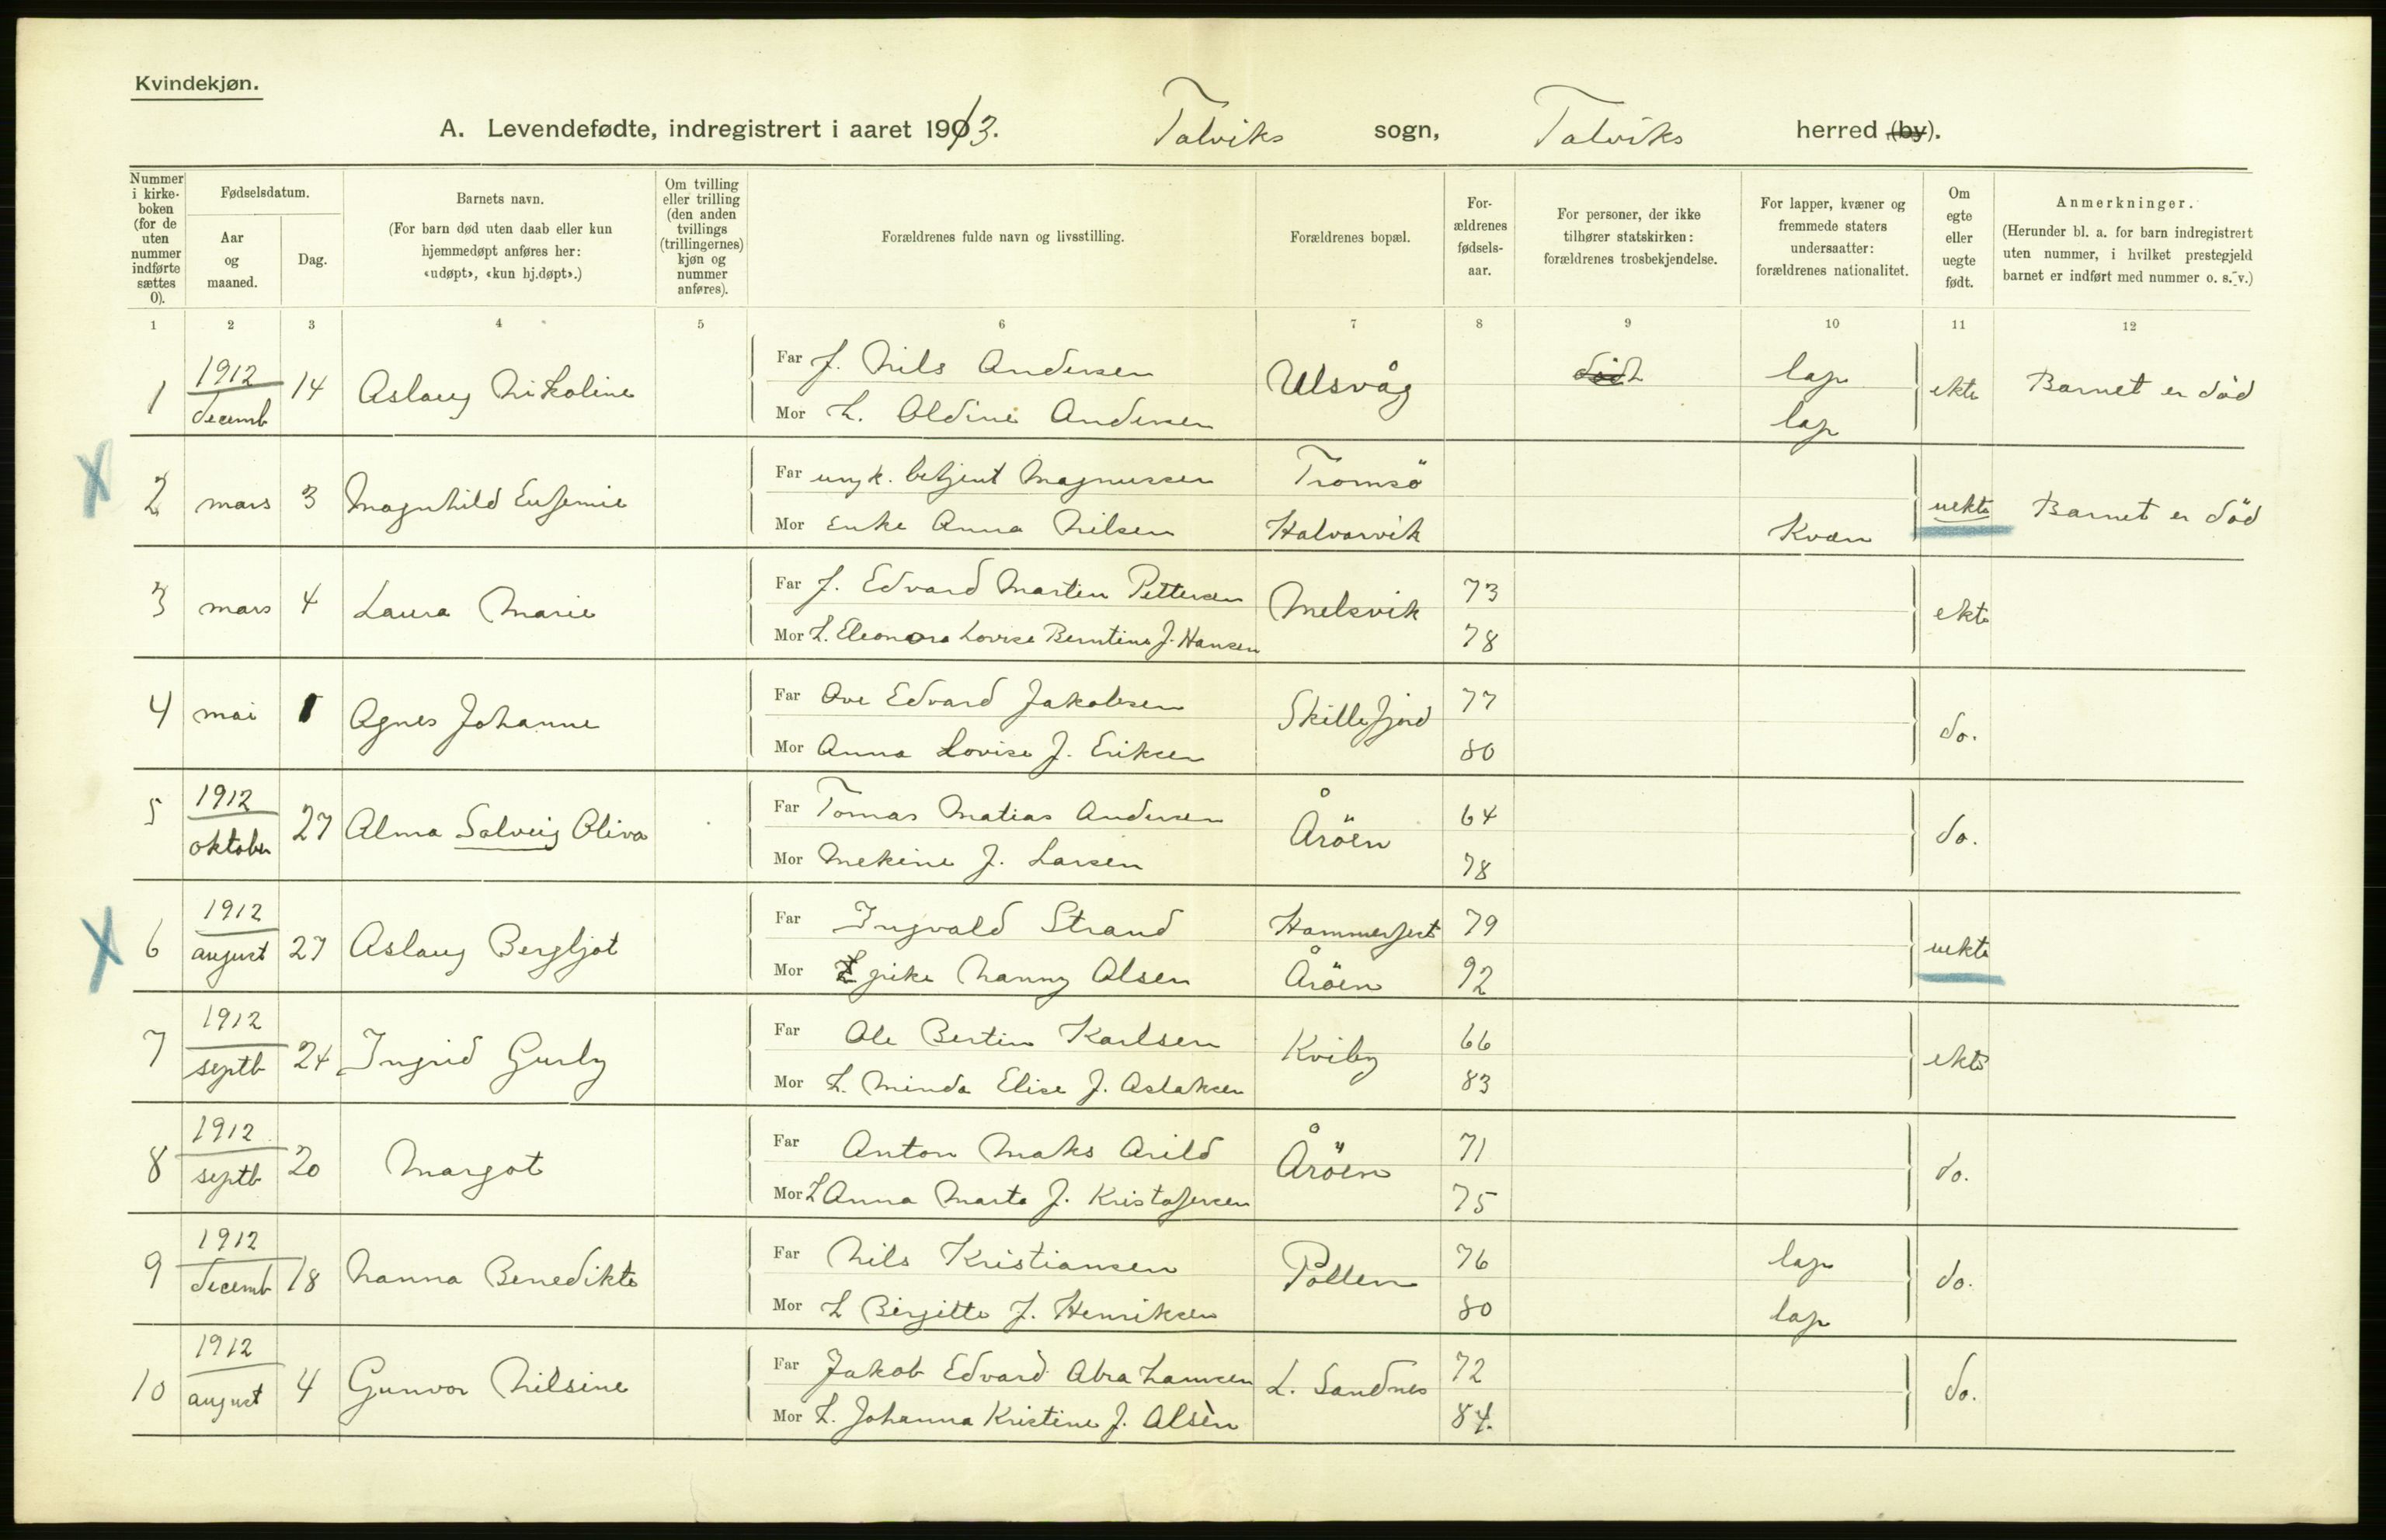 Kvindekjøn.
A. Levendefødte, indregistrert i aaret 1913. Talviks sogn, Talviks herred (by).
Nummer i kirke- boken (for de uten nummer indførte sættes 0).
Fødselsdatum.
Aar og maaned.
Dag.
Barnets navn.
(For barn død uten daab eller kun hjemmedøpt anføres her: «udøpt», «kun hj.døpt».)
Om tvilling eller trilling (den anden tvillings (trillingernes) kjøn og nummer anføres).
Forældrenes fulde navn og livsstilling.
Forældrenes bopæl.
For- ældrenes fødsels- aar.
For personer, der ikke tilhører statskirken: forældrenes trosbekjendelse.
For lapper, kvæner og fremmede staters undersaatter: forældrenes nationalitet.
Om egte eller uegte født.
Anmerkninger.
(Herunder bl. a. for barn indregistrert uten nummer, i hvilket prestegjeld barnet er indført med nummer o. s. v.)
1 2 3 4 5 6 7 8 9 10 11 12
1 1912 decemb 14 Aslaug Nikoline Far f. Nils Andersen Ulsvåg død lap ekte Barnet er død
Mor h. Oldine Andersen lap
2 mars 3 Magnhild Eufemie Far ungk. betjent Magnussen Tromsö uekte Barnet er död
Mor Enke Anna Nilsen Halvarvik Kvæn
3 mars 4 Laura Marie Far f. Edvard Martin Pettersen Melsvik 73 ekte
Mor h. Eleonora Lovise Berntine f. Hansen 78
4 mai 1 Agnes Johanne Far Ove Edvard Jakobsen Skillefjord 77 do.
Mor Anna Lovise f. Eriksen 80
5 1912 oktober 27 Alma Solveig Oliva Far Tomas Matias Andersen Åröen 64 do.
Mor Mekine f. Larsen 78
6 1912 august 27 Aslaug Bergljot Far Ingvald Strand Hammerfest 79 uekte
Mor pike Nanny Olsen Åröen 92
7 1912 septb 24 Ingrid Gurly Far Ole Bertin Karlsen Kviby 66 ekte
Mor h. Minda Elise f. Aslaksen 83
8 1912 septb 20 Margot Far Anton Maks Arild Åröen 71 do.
Mor h Anna Marta f. Kristofersen 75
9 1912 decemb 18 Nanna Benedikte Far Nils Kristiansen Pollen 76 lap do.
Mor h Birgitte f. Henriksen 80 lap
10 1912 august 4 Gunvor Nilsine Far Jakob Edvard Abrahamsen L. Sandnes 72 do.
Mor h. Johanna Kristine f. Olsen 84.